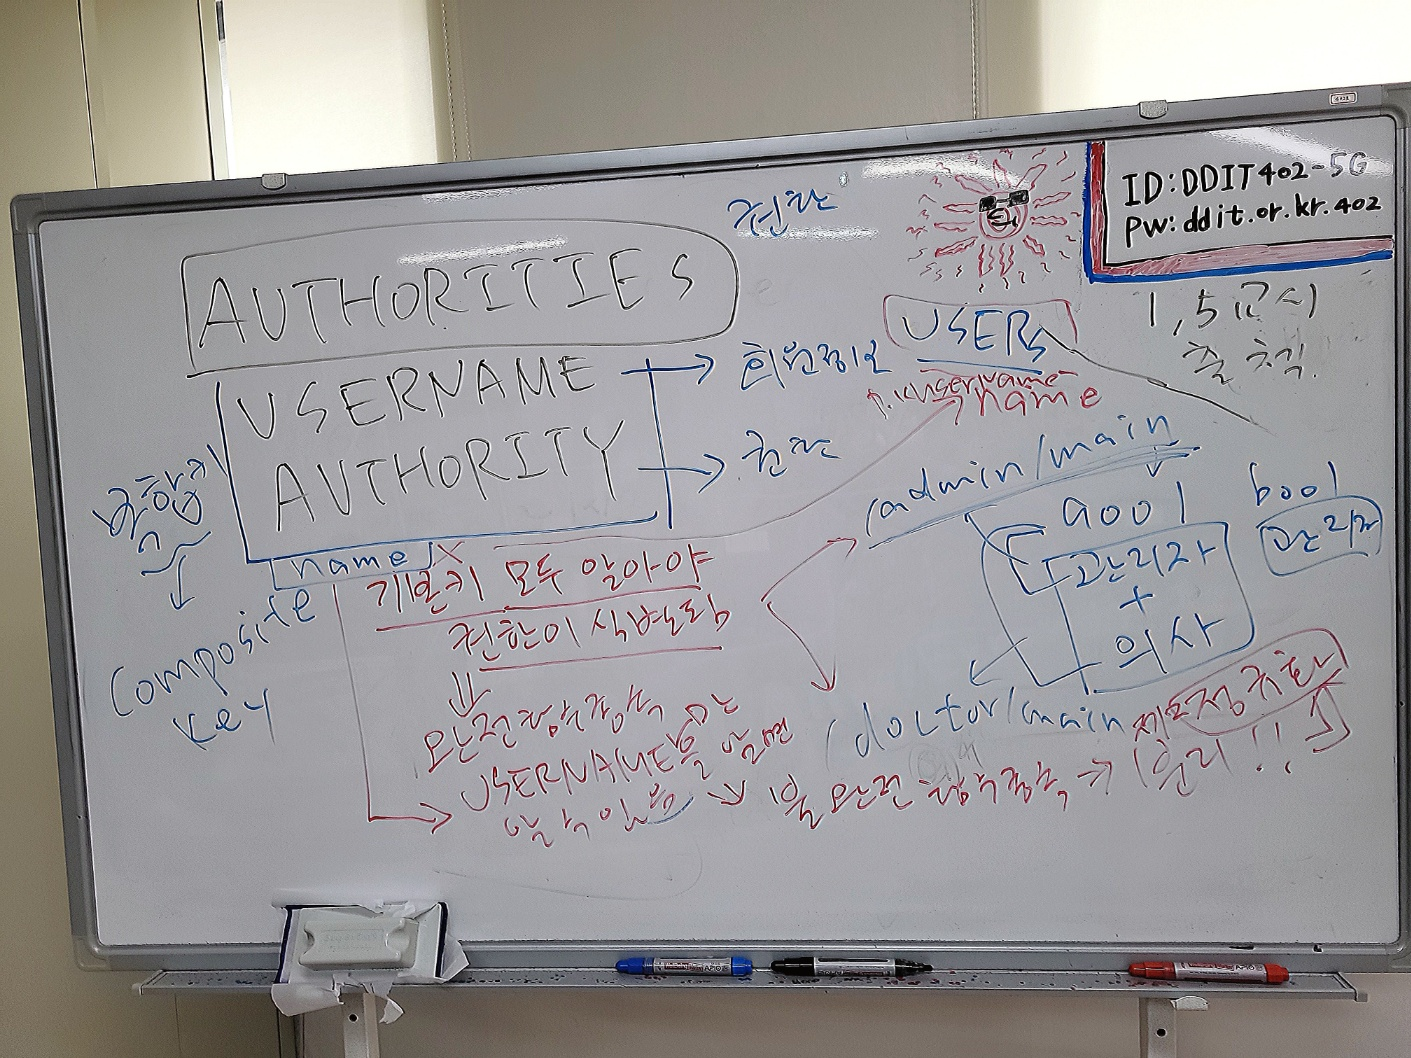 권한
ID:DDIT402-5G
PW:ddit.or.kr.402
1,5교시
출 체크.
AUTHORITIES
USERS
USERNAME
회원정보
username
name
AUTHORITY
권한
복합키
Composite
Key
name
기본키 모두 알아야
권한이 식별되림
완전함수종속 또는
USERNAME을 알면
알 수 있음
/admin/main
a001
관리자
+
의사
b001
관리자
/doctor/main
제2정규화
불완전 함수종속 → 분리!!